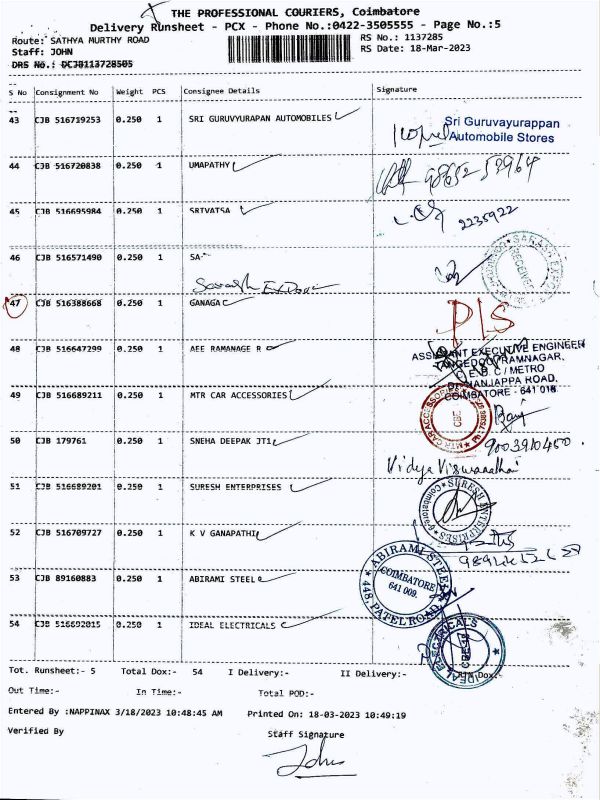 THE PROFESSIONAL COURIERS, Coimbatore
Delivery Runsheet - PCX - Phone No.:0422-3505555 - Page No.:5
Route: SATHYA MURTHY ROAD RS No.: 1137285
Staff: JOHN RS Date: 18-Mar-2023
DRS No.: DCJB113728505
S No Consignment No Weight PCS Consignee Details Signature
43 CJB 516719253 0.250 1 SRI GURUVYURAPAN AUTOMOBILES Sri Guruvayurappan
Automobile Stores
44 CJB 516720838 0.250 1 UMAPATHY 98652 53964
45 CJB 516695984 0.250 1 SRIVATSA 2235922
46 CJB 516571490 0.250 1 SA
RECEIVED
47 CJB 516388668 0.250 1 GANAGA P/S
48 CJB 516647299 0.250 1 AEE RAMANAGE R ASSISTANT EXECUTIVE ENGINEER
TANGEDCO / RAMNAGAR,
E.B.C / METRO
NANJAPPA ROAD,
COIMBATORE - 641 018.
49 CJB 516689211 0.250 1 MTR CAR ACCESSORIES MTR CAR ACCESSORIES
CBE
50 CJB 179761 0.250 1 SNEHA DEEPAK JT1 9003910450.
Vidya Viswanathan
51 CJB 516689201 0.250 1 SURESH ENTERPRISES SURESH ENTERPRISES
Coimbatore
52 CJB 516709727 0.250 1 K V GANAPATHI
53 CJB 89160883 0.250 1 ABIRAMI STEEL ABIRAMI STEEL
COIMBATORE
641 009.
448, PATEL ROAD
54 CJB 516692015 0.250 1 IDEAL ELECTRICALS IDEAL ELECTRICALS
Tot. Runsheet:- 5 Total Dox:- 54 I Delivery:- II Delivery:- RTN Dox:-
Out Time:- In Time:- Total POD:-
Entered By :NAPPINAX 3/18/2023 10:48:45 AM Printed On: 18-03-2023 10:49:19
Verified By Staff Signature
John